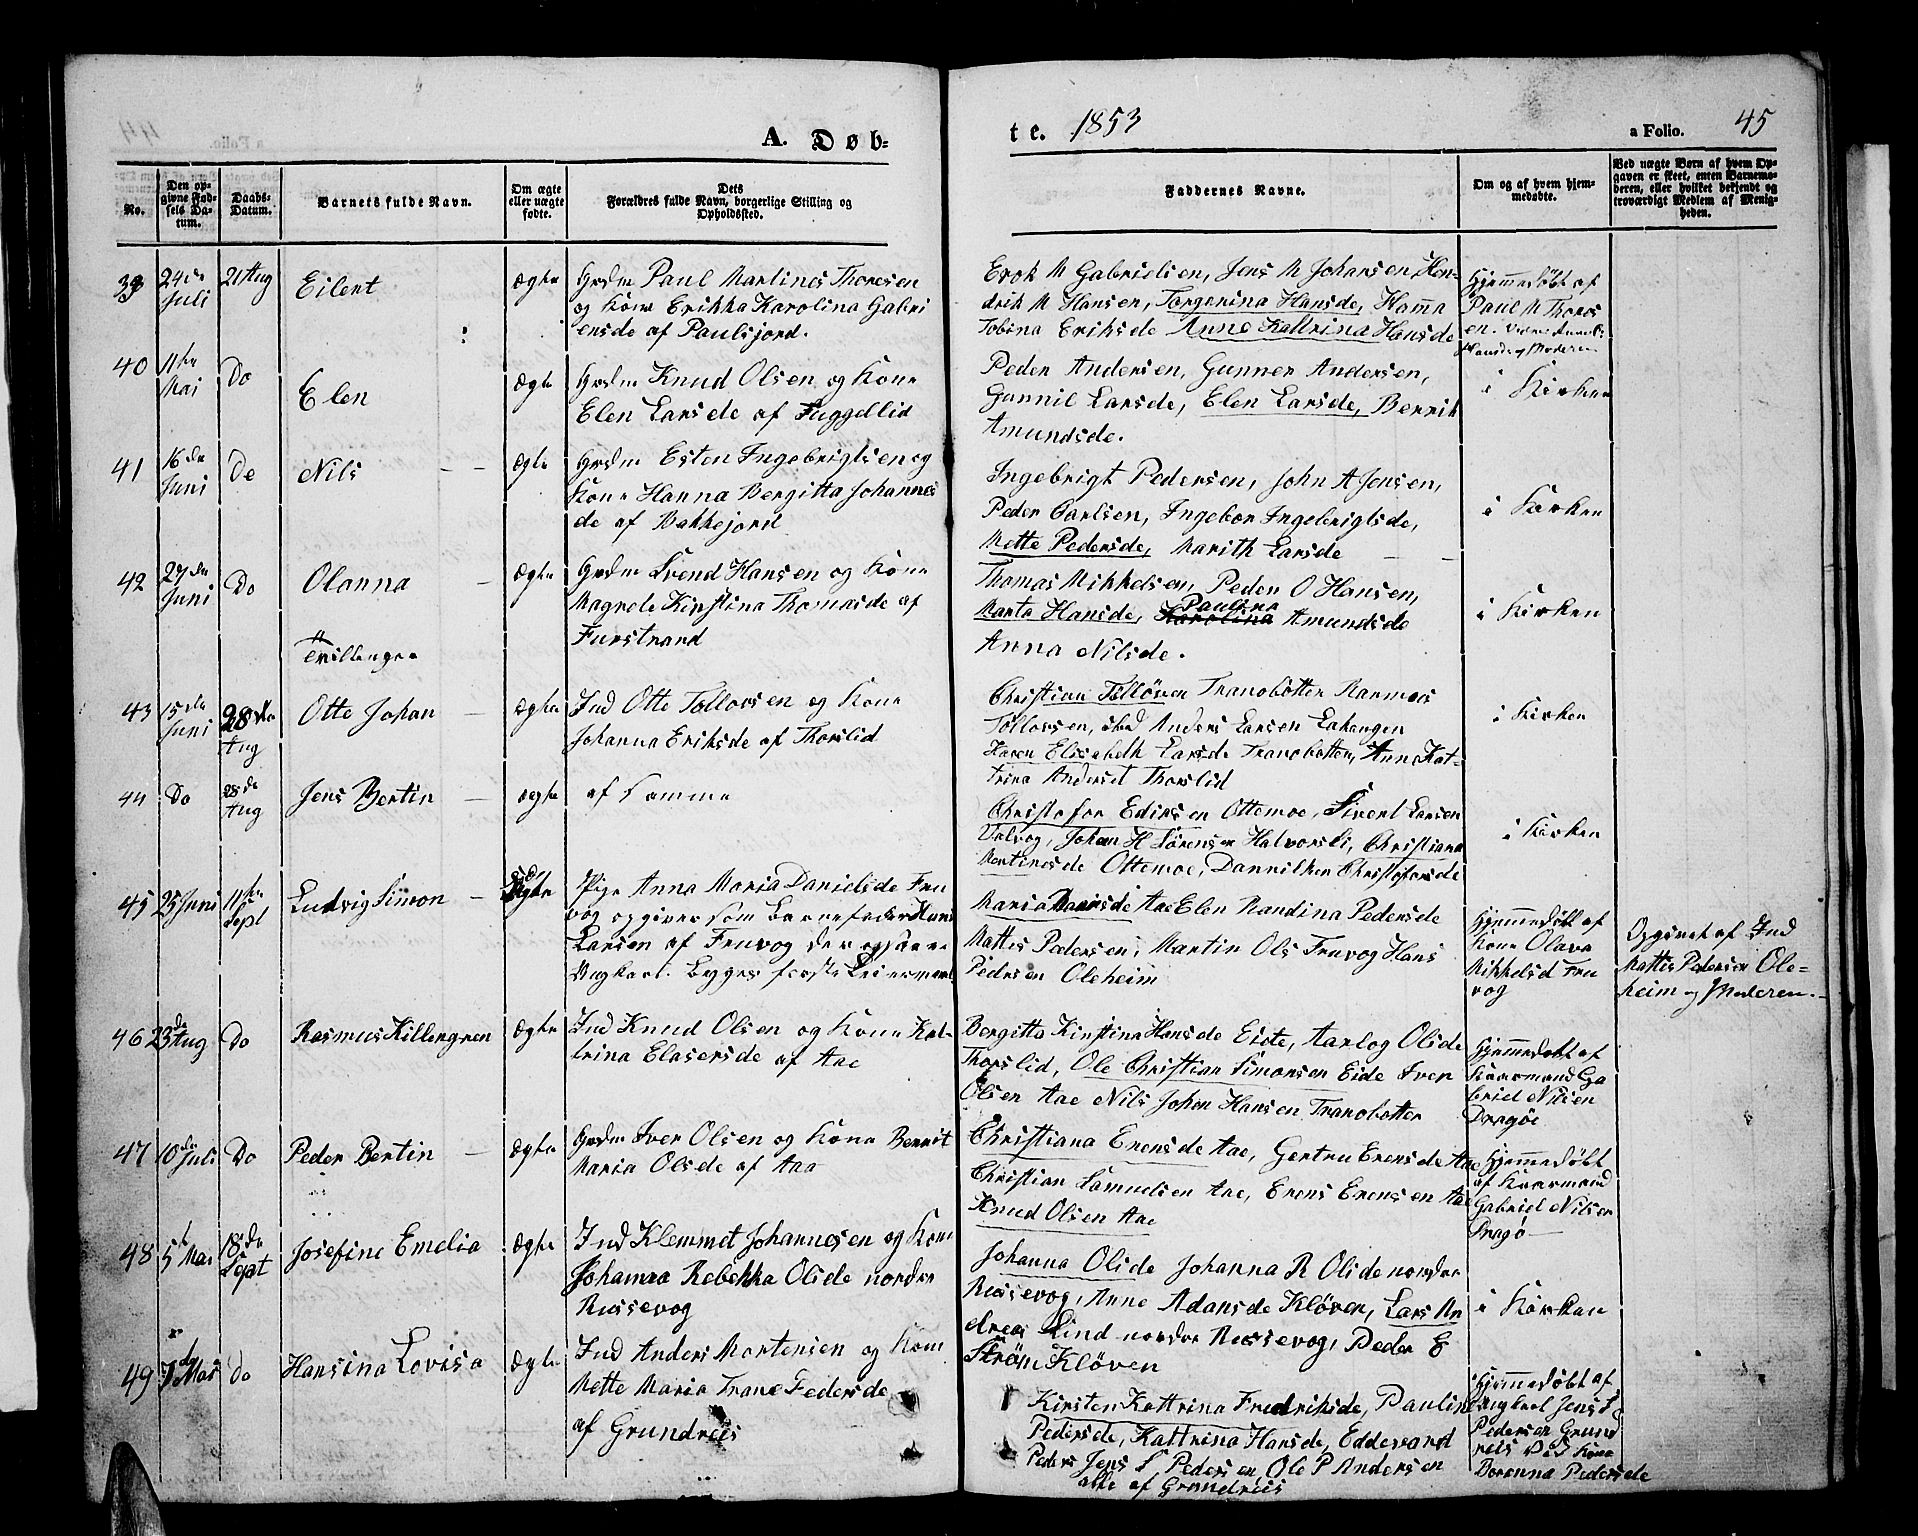 A. Døb-
te. 1853
a Folio. 45
No.
Den opgivne Fødsels Datum.
Daabs-Datum.
Barnets fulde Navn.
Om ægte eller uægte fødte.
Dets Forældres fulde Navn, borgerlige Stilling og Opholdsted.
Faddernes Navne.
Om og af hvem hjemmedøbte.
Ved uægte Børn af hvem Opgaven er skeet, enten Barnemoderen, eller hvilket bekjendt og troværdigt Medlem af Menigheden.
39 24de Juli 21 Aug Eilert ægte
Grdm Paul Martines Thoresen
og Kone Erikka Karolina Gabri
ensde af Paulsjord.
M Gabrielsen, Jens M Johansen, Hen-
drik M Hansen, Torgerina Hansde, Hanna
Tobina Eriksde Anne Kattrina Hansde
Hjemmedøbt af
Paul M Thores
en.
40 11te Mai Do Elen Ægte
Grdm Knud Olsen og Kone
Elen Larsde af Fuggellid
Peder Andersen, Gunner Andersen,
Gunnil Larsde, Elen Larsde, Berrit
Amundsde.
i Kirken
41 16de Juni Do Nils Ægte
Grdm Esten Ingebrigtsen og
Kone Hanna Bergitta Johannes
de af Bakkejord
Ingebrigt Pedersen, John A Jensen,
Peder Carlsen, Ingebor Ingebrigtsde,
Mette Pedersde, Marith Larsde
i Kirken
42 27de Juni Do Olanna Ægte
Grdm Svend Hansen og Kone
Magnele Kirstina Thomasde af
Furstrand
Thomas Mikkelsen, Peder O Hansen,
Marta Hansde, Karolina Paulina Amundsde
Anna Nilsde.
i Kirken
Tvillenger
43 15de Juni 28de Aug Otte Johan ægte
Ind Otte Tollovsen og Kone
Johanna Eriksde af Thorslid
Christian Tolløven Tranobotten Rasmus
Tollovsen, Anders Larsen Lakangen
Karen Elisabeth Larsde Tranobotten, Anne Kat-
trina Andersd Thorslid
i Kirken
44 Do 28de Aug Jens Bertin ægte
af Samme
Christofer Edirsen Ottemoe, Sivert Larsen
Valvog, Johan H Sørensen Halvorsli, Christiana
Mortinesde Ottemoe, Christofersde
i Kirken
45 25 Juni 11te Sept Ludvig Simon
Pige Anna Maria Danielsde Fru
vog opgiver som Barnefader Hans
Larsen af Fruvog
Ungkarl. Begges første Leiermaal
Maria Aae Elen Randina Pedersde
Mattis Pedersen, Martin Ols Fruvog Hans
Pedersen Oleheim
Hjemmedøbt af
Kone Olava
Mikkelsd Fru
vog
Opgivet af Ind
Mattis Pedersen Ole-
heim og Moderen.
46 23de Aug Do Rasmus Killengreen Ægte
Ind Knud Olsen og Kone Kat-
trina Elasersde af Aae
Bergitta Kirstina Hansde Eide, Aarlog Olsde
Thorslid, Ole Christian Simonsen Eide Iver
Olsen Aae Nils Johan Hansen Tranobotten
Hjemmedøbt af
Kvarmand Ga
briel Nilsen
Dragøe
47 10de Juli Do Peder Bertin ægte
Grdm Iver Olsen og Kone Berrit
Maria Olsde af Aae
Christiana Erensde Aae, Gertru Erensde Aae
Christian Samuelsen Aae, Erens Erensen Aae
Knud Olsen Aae
Hjemmedøbt
af Kvarmand
Gabriel Nilsen
Dragø
48 5te Mai 18de Sept Josefine Emelia Ægte
Ind Klemmet Johannesen og Kone
Johanna Rebekka Olsde nordre
Russevog
Johanna Olsde Johanna R Olsde nordre
Russevog, Anne Adansde Kløven, Lars An
dreas Lind nordre Russevog, Peder E
Strøm Kløven
i Kirken
49 7de Mai do Hansina Lovisa Ægte
Ind Anders Mortensen og Kone
Mette Maria Trane Pedersde
af Grundreis
Kirsten Kattrina Fredriksde, Paulin
Pedersde, Kattrina Hansde, Eddevard
Peders Jens S Pedersen, Ole P Andersen
alle af Grundreis
Hjemmedøbt af
Ungkarl Jens S
Pedersen Grund
reis
Berenna Pedersde